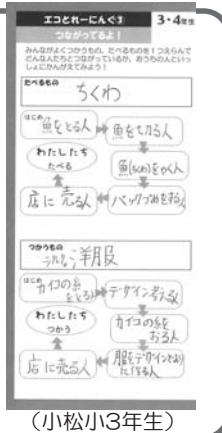 エコとれーにんぐ③ 3・4年生
つながってるよ！
みんながよくつかうもの、たべるものを1つえらんで
どんな人たちとつながっているか、おうちの人といっ
しょにかんがえてみよう！
たべるもの
ちくわ
はじめ
魚をとる人
魚を切る人
魚(ちくわ)をやく人
パックづめをする人
店に売る人
わたしたち
たべる
つかうもの
シルクな洋服
はじめ
カイコの糸
をとる人
デザイン考える人
カイコの糸を
おる人
服をデザインどおり
に作る人
店に売る人
わたしたち
つかう
（小松小3年生）